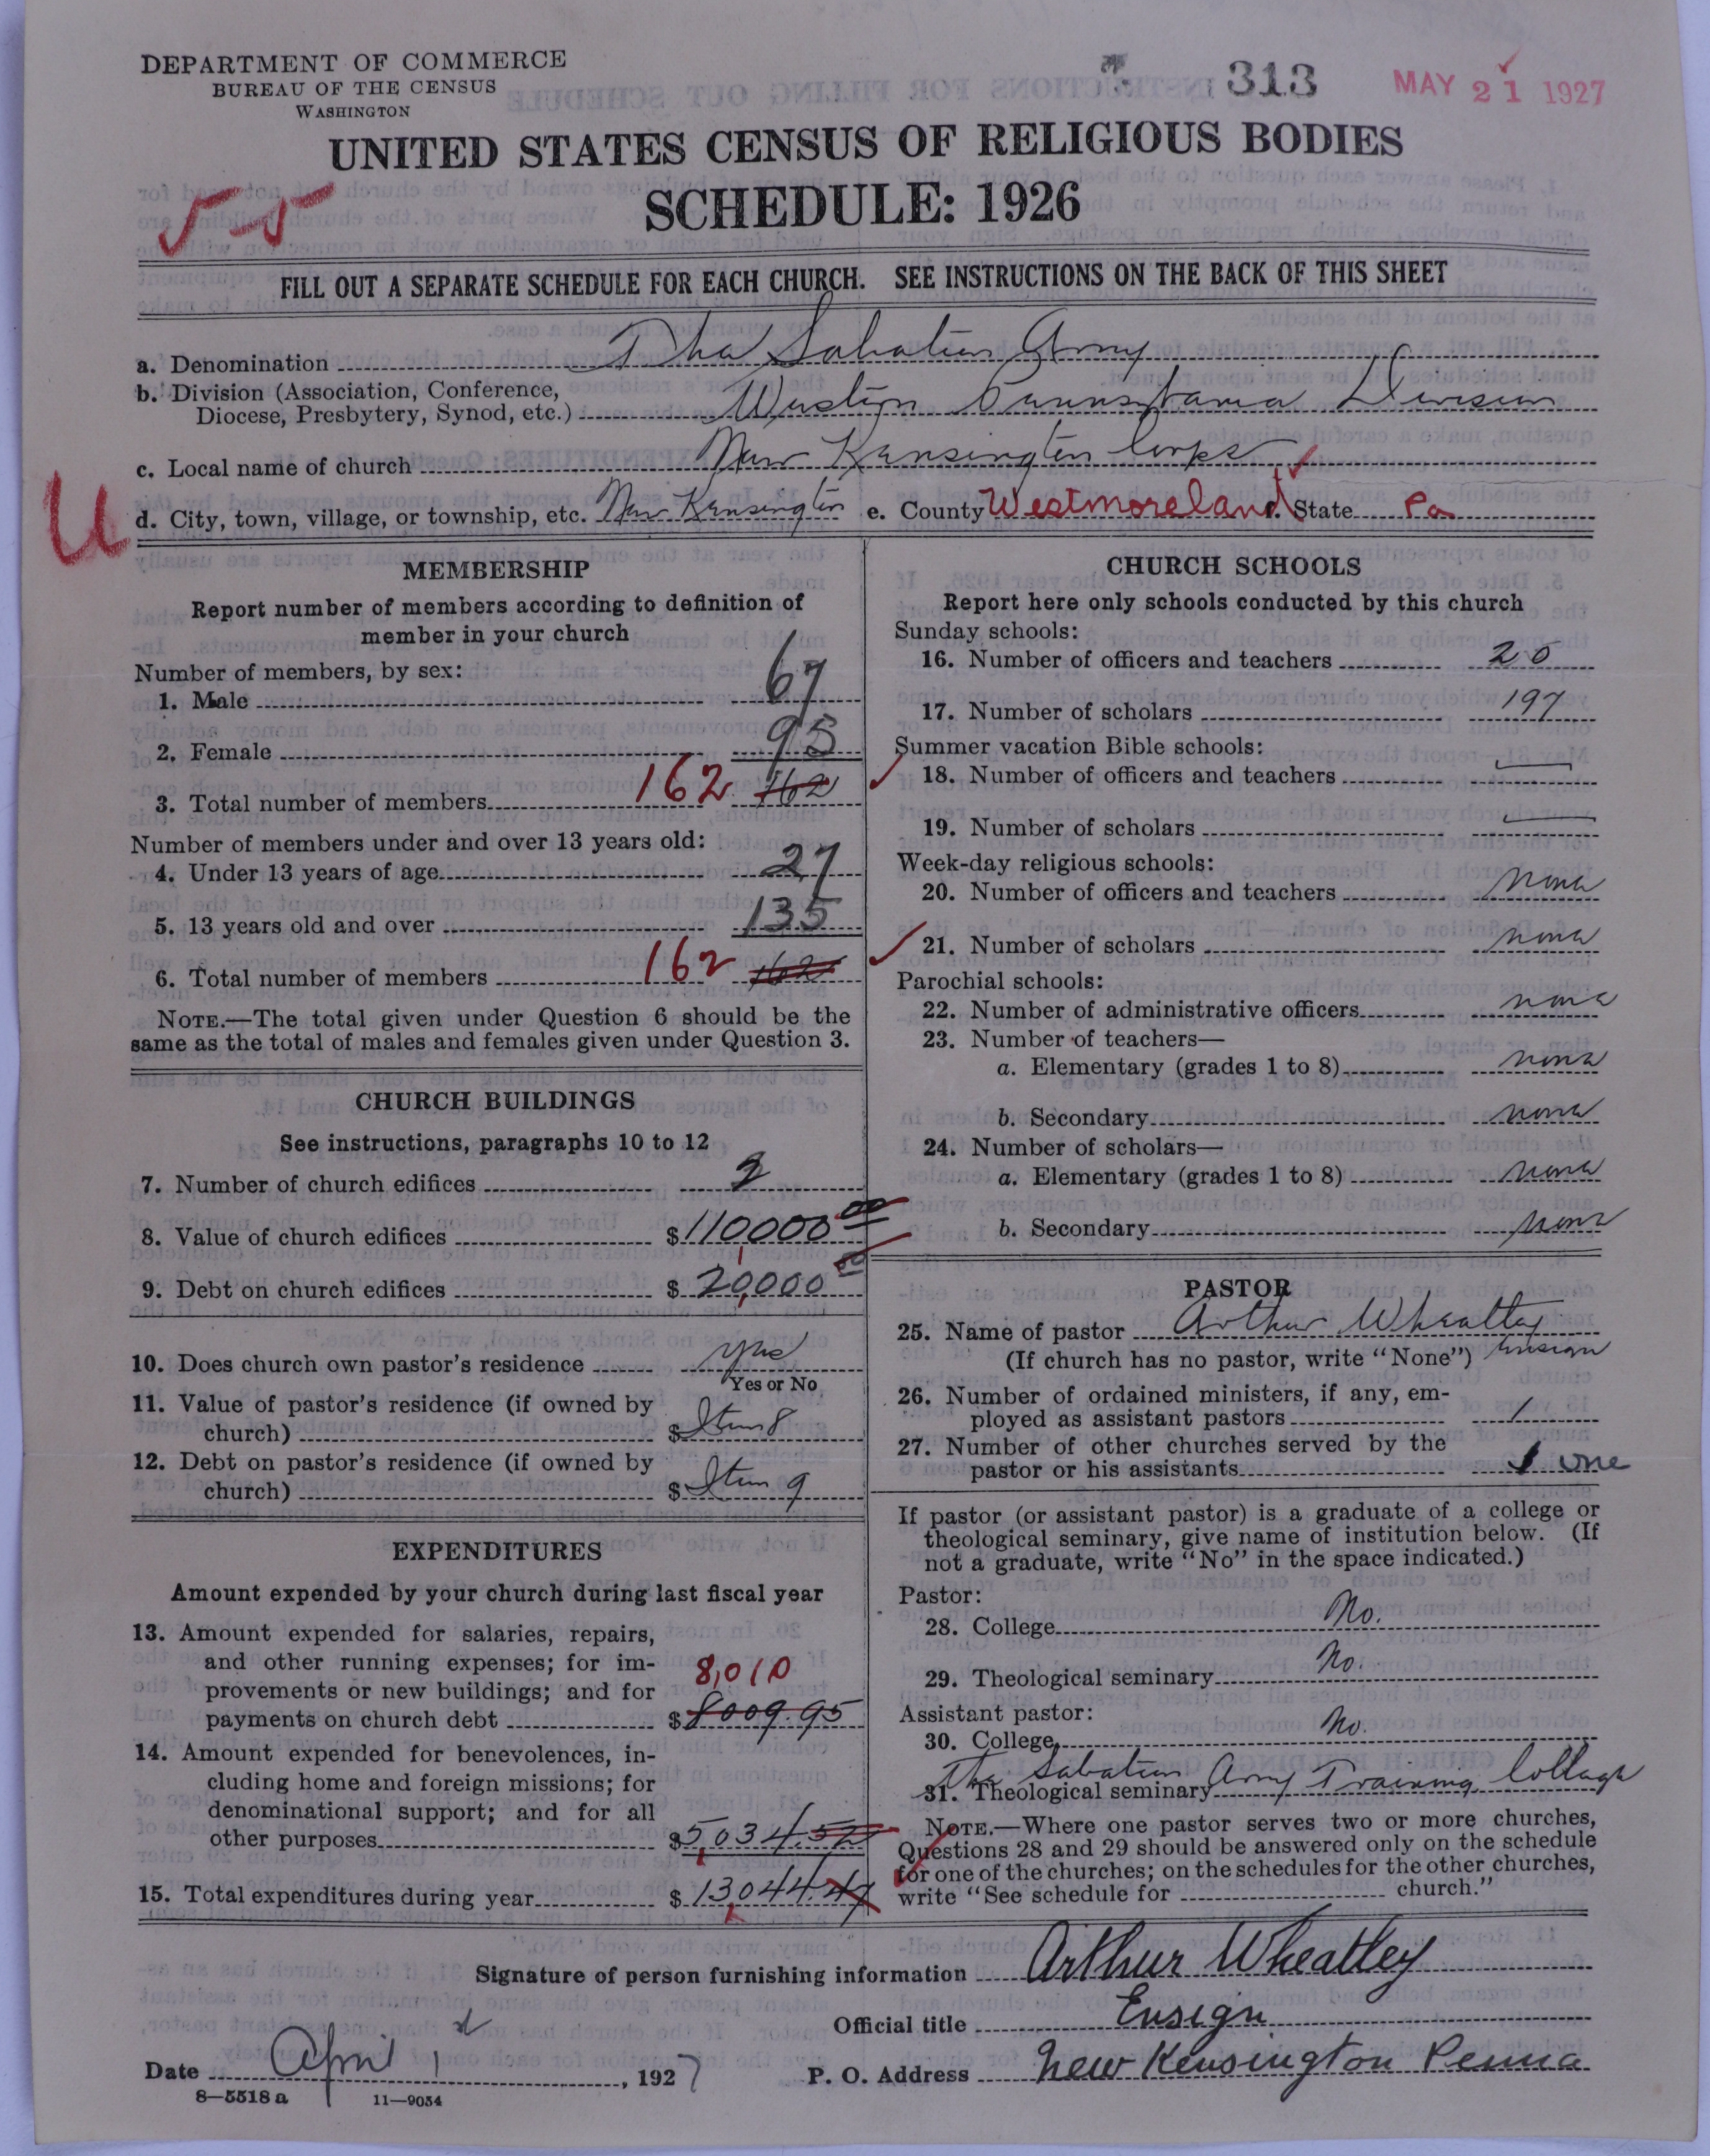 DEPARTMENT OF COMMERCE
BUREAU OF THE CENSUS
WASHINGTON
313
MAY 21 1927
UNITED STATES CENSUS OF RELIGIOUS BODIES
SCHEDULE: 1926
5-5
FILL OUT A SEPARATE SCHEDULE FOR EACH CHURCH. SEE INSTRUCTIONS ON THE BACK OF THIS SHEET
a. Denomination The Salvation Army
b. Division (Association, Conference,
Diocese, Presbytery, Synod, etc.) Western Pennsylvania Division
c. Local name of church New Kensington Corps
U
d. City, town, village, or township, etc. New Kensington e. County Westmoreland f. State Pa
MEMBERSHIP
Report number of members according to definition of
member in your church
Number of members, by sex:
1. Male 67
2. Female 95
3. Total number of members 162 162
Number of members under and over 13 years old:
4. Under 13 years of age 27
5. 13 years old and over 135
6. Total number of members 162 162
NOTE.—The total given under Question 6 should be the
same as the total of males and females given under Question 3.
CHURCH BUILDINGS
See instructions, paragraphs 10 to 12
7. Number of church edifices 2
8. Value of church edifices $110,000 00
9. Debt on church edifices $20,000 00
10. Does church own pastor's residence yes
Yes or No
11. Value of pastor's residence (if owned by
church) $ Item 8
12. Debt on pastor's residence (if owned by
church) $ Item 9
EXPENDITURES
Amount expended by your church during last fiscal year
13. Amount expended for salaries, repairs,
and other running expenses; for im-
provements or new buildings; and for 8,010
payments on church debt $8009.95
14. Amount expended for benevolences, in-
cluding home and foreign missions; for
denominational support; and for all
other purposes $5,034.52
15. Total expenditures during year $13,044.47
CHURCH SCHOOLS
Report here only schools conducted by this church
Sunday schools:
16. Number of officers and teachers 20
17. Number of scholars 197
Summer vacation Bible schools:
18. Number of officers and teachers —
19. Number of scholars —
Week-day religious schools:
20. Number of officers and teachers none
21. Number of scholars none
Parochial schools:
22. Number of administrative officers none
23. Number of teachers—
a. Elementary (grades 1 to 8) none
b. Secondary none
24. Number of scholars—
a. Elementary (grades 1 to 8) none
b. Secondary none
PASTOR
25. Name of pastor Arthur Wheatley
(If church has no pastor, write "None") Ensign
26. Number of ordained ministers, if any, em-
ployed as assistant pastors 1
27. Number of other churches served by the
pastor or his assistants 1 one
If pastor (or assistant pastor) is a graduate of a college or
theological seminary, give name of institution below. (If
not a graduate, write "No" in the space indicated.)
Pastor:
28. College No.
29. Theological seminary No.
Assistant pastor:
30. College No.
The Salvation Army Training College
31. Theological seminary
NOTE.—Where one pastor serves two or more churches,
Questions 28 and 29 should be answered only on the schedule
for one of the churches; on the schedules for the other churches,
write "See schedule for church."
Signature of person furnishing information Arthur Wheatley
Official title Ensign
Date April 1st, 1927
P. O. Address New Kensington Penna
8—5518 a 11—9054